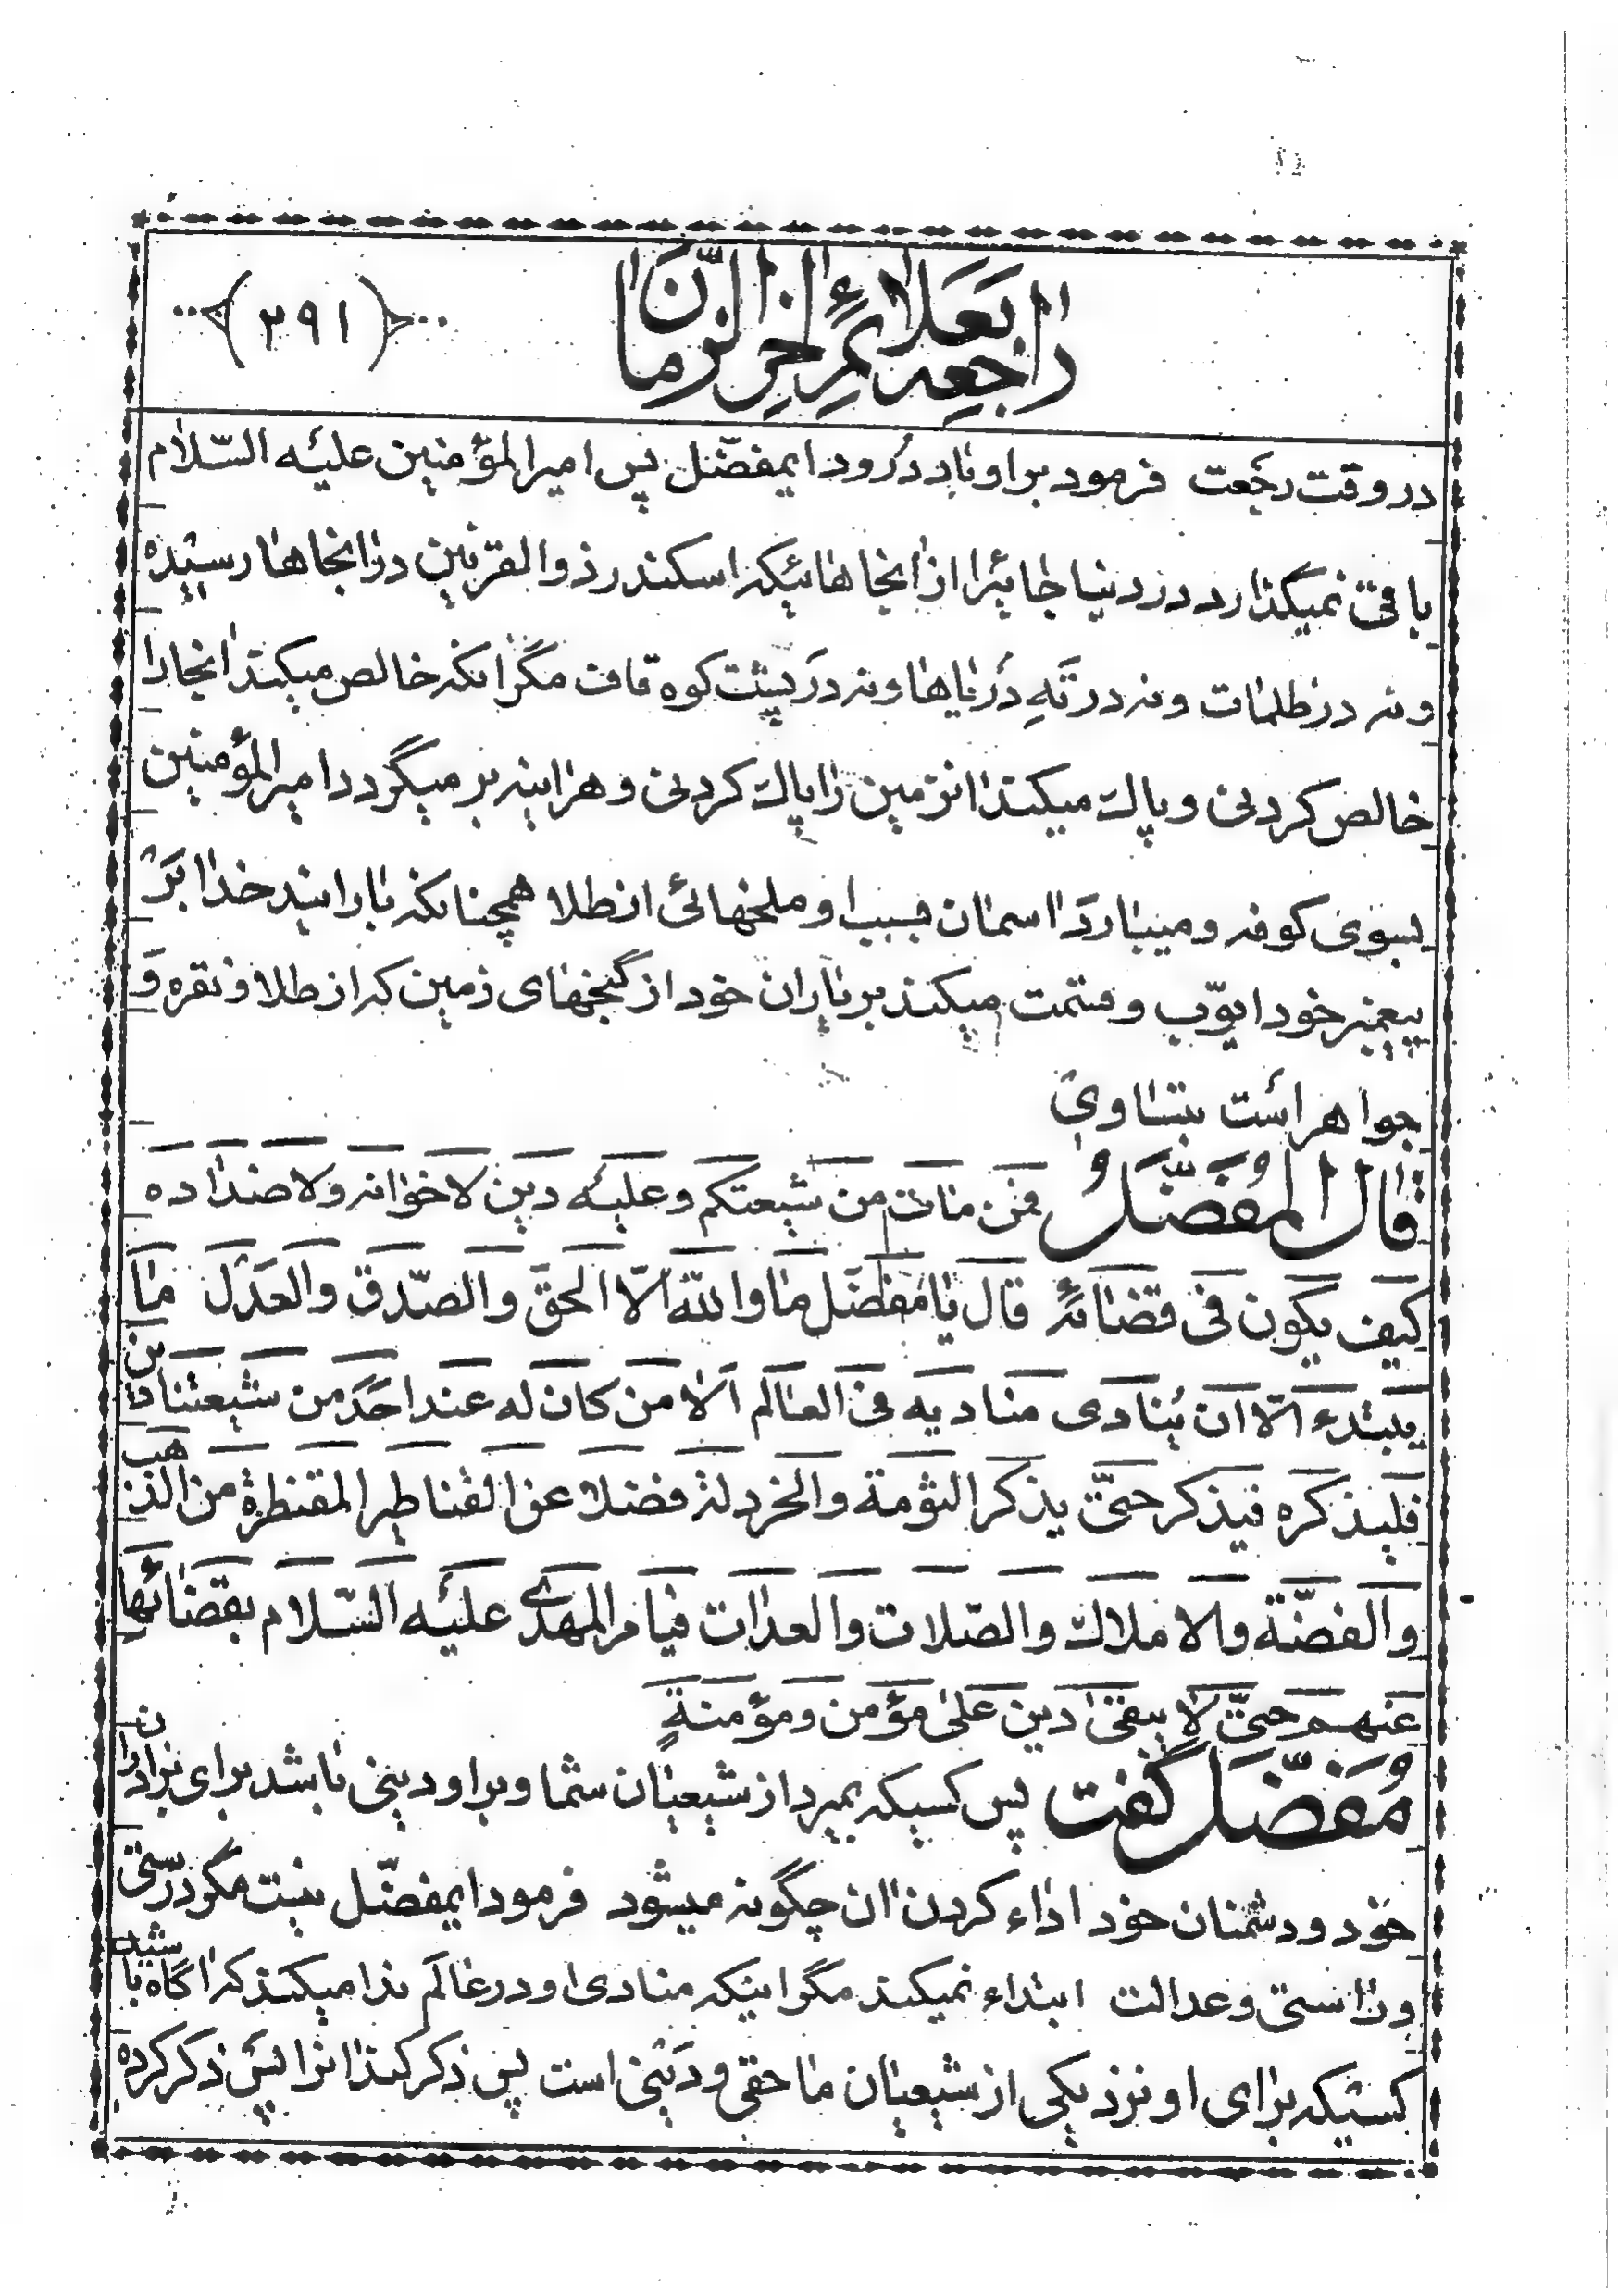 راجعه بعلائم اخر الزمان
(۲۹۱)
در وقت رجعت فرمود براو باد درود ایمفضّل پس امیرالمؤمنین علیه السّلام
باقی نمیگذارد در دنیا جائیرا از انجاهائیکه اسکندر ذوالقرنین در انجاها رسیده
ونه در ظلمات ونه در ته دریاها ونه در پشت کوه قاف مگر انکه خالص میکند انجارا
خالص کردنی و پاک میکند انزمین را پاک کردنی و هراینه بر میگردد امیرالمؤمنین
بسوی کوفه و میبارد اسمان و ملخهائی از طلا همچنانکه بارانید خدا بر
پیغمبر خود ایوّب و قسمت میکند بر یاران خود از گنجهای زمین که از طلا و نقره و
جواهر است بتساوی
قال المُفضّلُ فمن مات من شیعتکم وعلیه دین لاخوانه ولاضداده
کیف یکون فی قضائه قال یا مفضّل ما والله الّا الحقّ والصّدق والعدل ما
یبتدء الّا ان ینادی منادیه فی العالم الا من کان له عند احد من شیعتنا دین
فلیذکره فیذکر حتّی یذکر الثومة والخردلة فضلا عن القناطیر المقنطرة من الذهب
والفضّة والاملاک والصّلات والعدات قیام المهدی علیه السّلام بقضائها
عنهم حتّی لا یبقی دین علی مؤمن ومؤمنةٍ
مُفضّل گفت پس کسیکه بمیرد از شیعیان شما و براو دینی باشد برای برادران
خود و دشمنان خود اداء کردن ان چگونه میشود فرمود ایمفضّل نیست مگر درستی
و راستی و عدالت ابتداء نمیکند مگر اینکه منادی او در عالم ندا میکند که اگاه باشید
کسیکه برای او نزد یکی از شیعیان ما حقی و دینی است پس ذکر کند انرا پس ذکر کرده